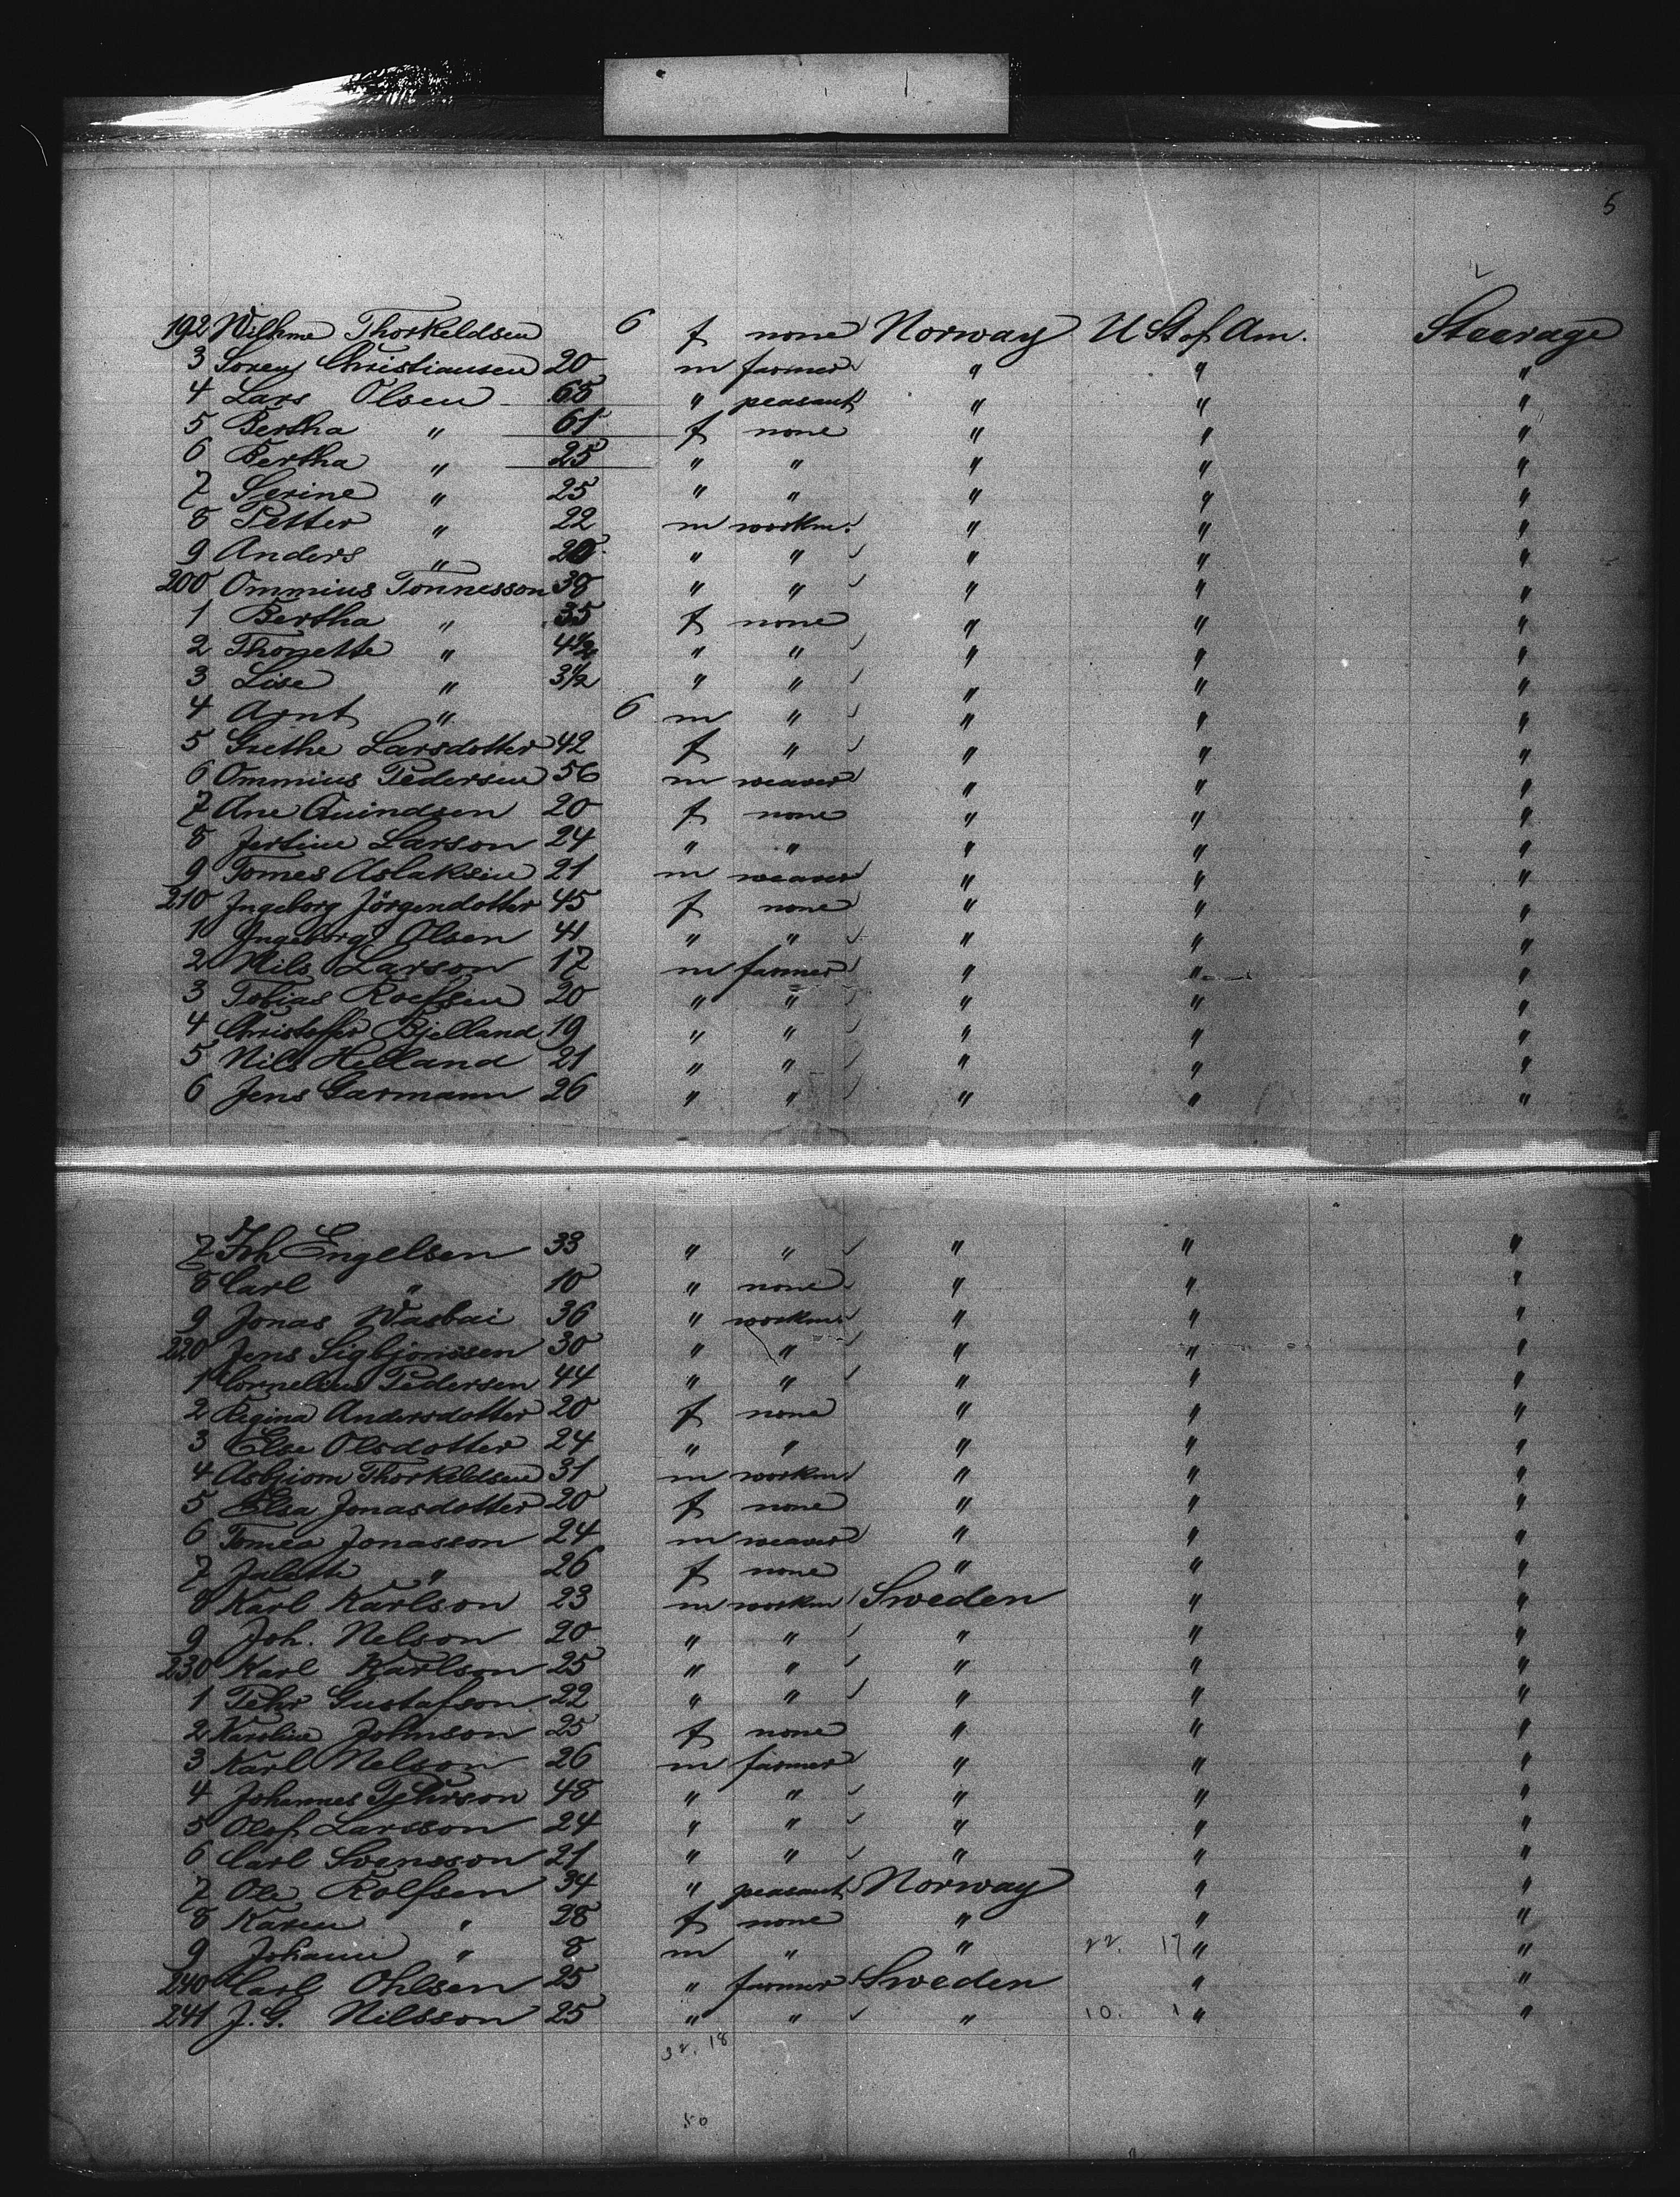 5
192 Wilhme Thorkeldsen 6 f none Norway U St of Am. Steerage
3 Soren Christiansen 20 m farmer " " "
4 Lars Olsen 65 " peasant " " "
5 Bertha " 61 f none " " "
6 Bertha " 25 " " " " "
7 Serine " 25 " " " " "
8 Petter " 22 m workm. " " "
9 Anders " 20 " " " " "
200 Ommius Tönnesson 38 " " " " "
1 Bertha " 35 f none " " "
2 Thonette " 4 1/2 " " " " "
3 Lise " 3 1/2 " " " " "
4 Arnt " 6 m " " " "
5 Grethe Larsdotter 42 f " " " "
6 Ommius Pedersen 56 m weaver " " "
7 Ane Quindsen 20 f none " " "
8 Jertine Larson 24 " " " " "
9 Tomes Aslaksen 21 m weaver " " "
210 Ingeborg Jörgendotter 45 f none " " "
1 Ingeborg Olsen 41 " " " " "
2 Nils Larson 17 m farmer " " "
3 Tobias Roefsen 20 " " " " "
4 Christoffer Bjelland 19 " " " " "
5 Nils Helland 21 " " " " "
6 Jens Garmann 26 " " " " "
7 Joh Engelsen 33 " " " " "
8 Carl " 10 " none " " "
9 Jonas Wasbai 36 " workm. " " "
220 Jens Sigbjornsen 30 " " " " "
1 Cornelius Pedersen 44 " " " " "
2 Regina Andersdotter 20 f none " " "
3 Else Olsdotter 24 " " " " "
4 Asbjiom Thorkeldsen 31 m workm " " "
5 Elsa Jonasdotter 20 f none " " "
6 Tomea Jonasson 24 m weaver " " "
7 Jalette " 26 f none " " "
8 Karl Karlson 23 m workm Sweden " "
9 Joh. Nelson 20 " " " " "
230 Karl Karlson 25 " " " " "
1 Pehr Gustafson 22 " " " " "
2 Karoline Johnson 25 f none " " "
3 Karl Nelson 26 m farmer " " "
4 Johannes Pehrson 48 " " " " "
5 Olof Larsson 24 " " " " "
6 Carl Svensson 21 " " " " "
7 Ole Rolfsen 34 " peasant Norway " "
8 Karen " 28 f none " " "
9 Johann " 8 m " " 22. 17 " "
240 Carl Ohlsen 25 " farmer Sweden " "
241 J. G. Nilsson 25 " " " 10. 1 " "
32. 18
50